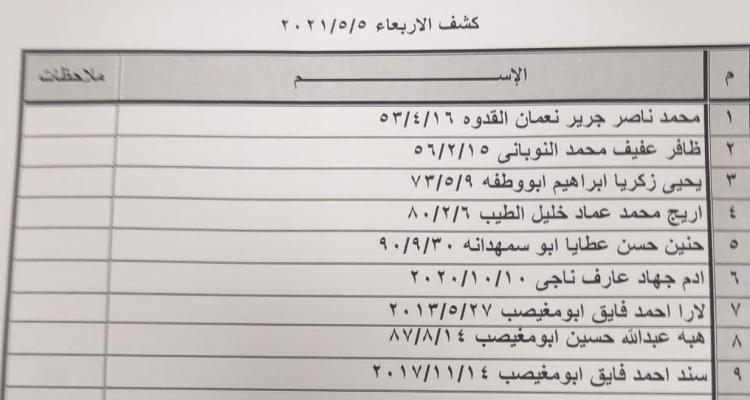 كشف الاربعاء ٢٠٢١/٥/٥
م الإســـــــــــــــم ملاحظات
١ محمد ناصر جرير نعمان القدوه ٥٣/٤/١٦
٢ ظافر عفيف محمد النوبانى ٥٦/٢/١٥
٣ يحيى زكريا ابراهيم ابووطفه ٧٣/٥/٩
٤ اريج محمد عماد خليل الطيب ٨٠/٢/٦
٥ حنين حسن عطايا ابو سمهدانه ٩٠/٩/٣٠
٦ ادم جهاد عارف ناجى ٢٠٢٠/١٠/١٠
٧ لارا احمد فايق ابومغيصب ٢٠١٣/٥/٢٧
٨ هبه عبدالله حسين ابومغيصب ٨٧/٨/١٤
٩ سند احمد فايق ابومغيصب ٢٠١٧/١١/١٤